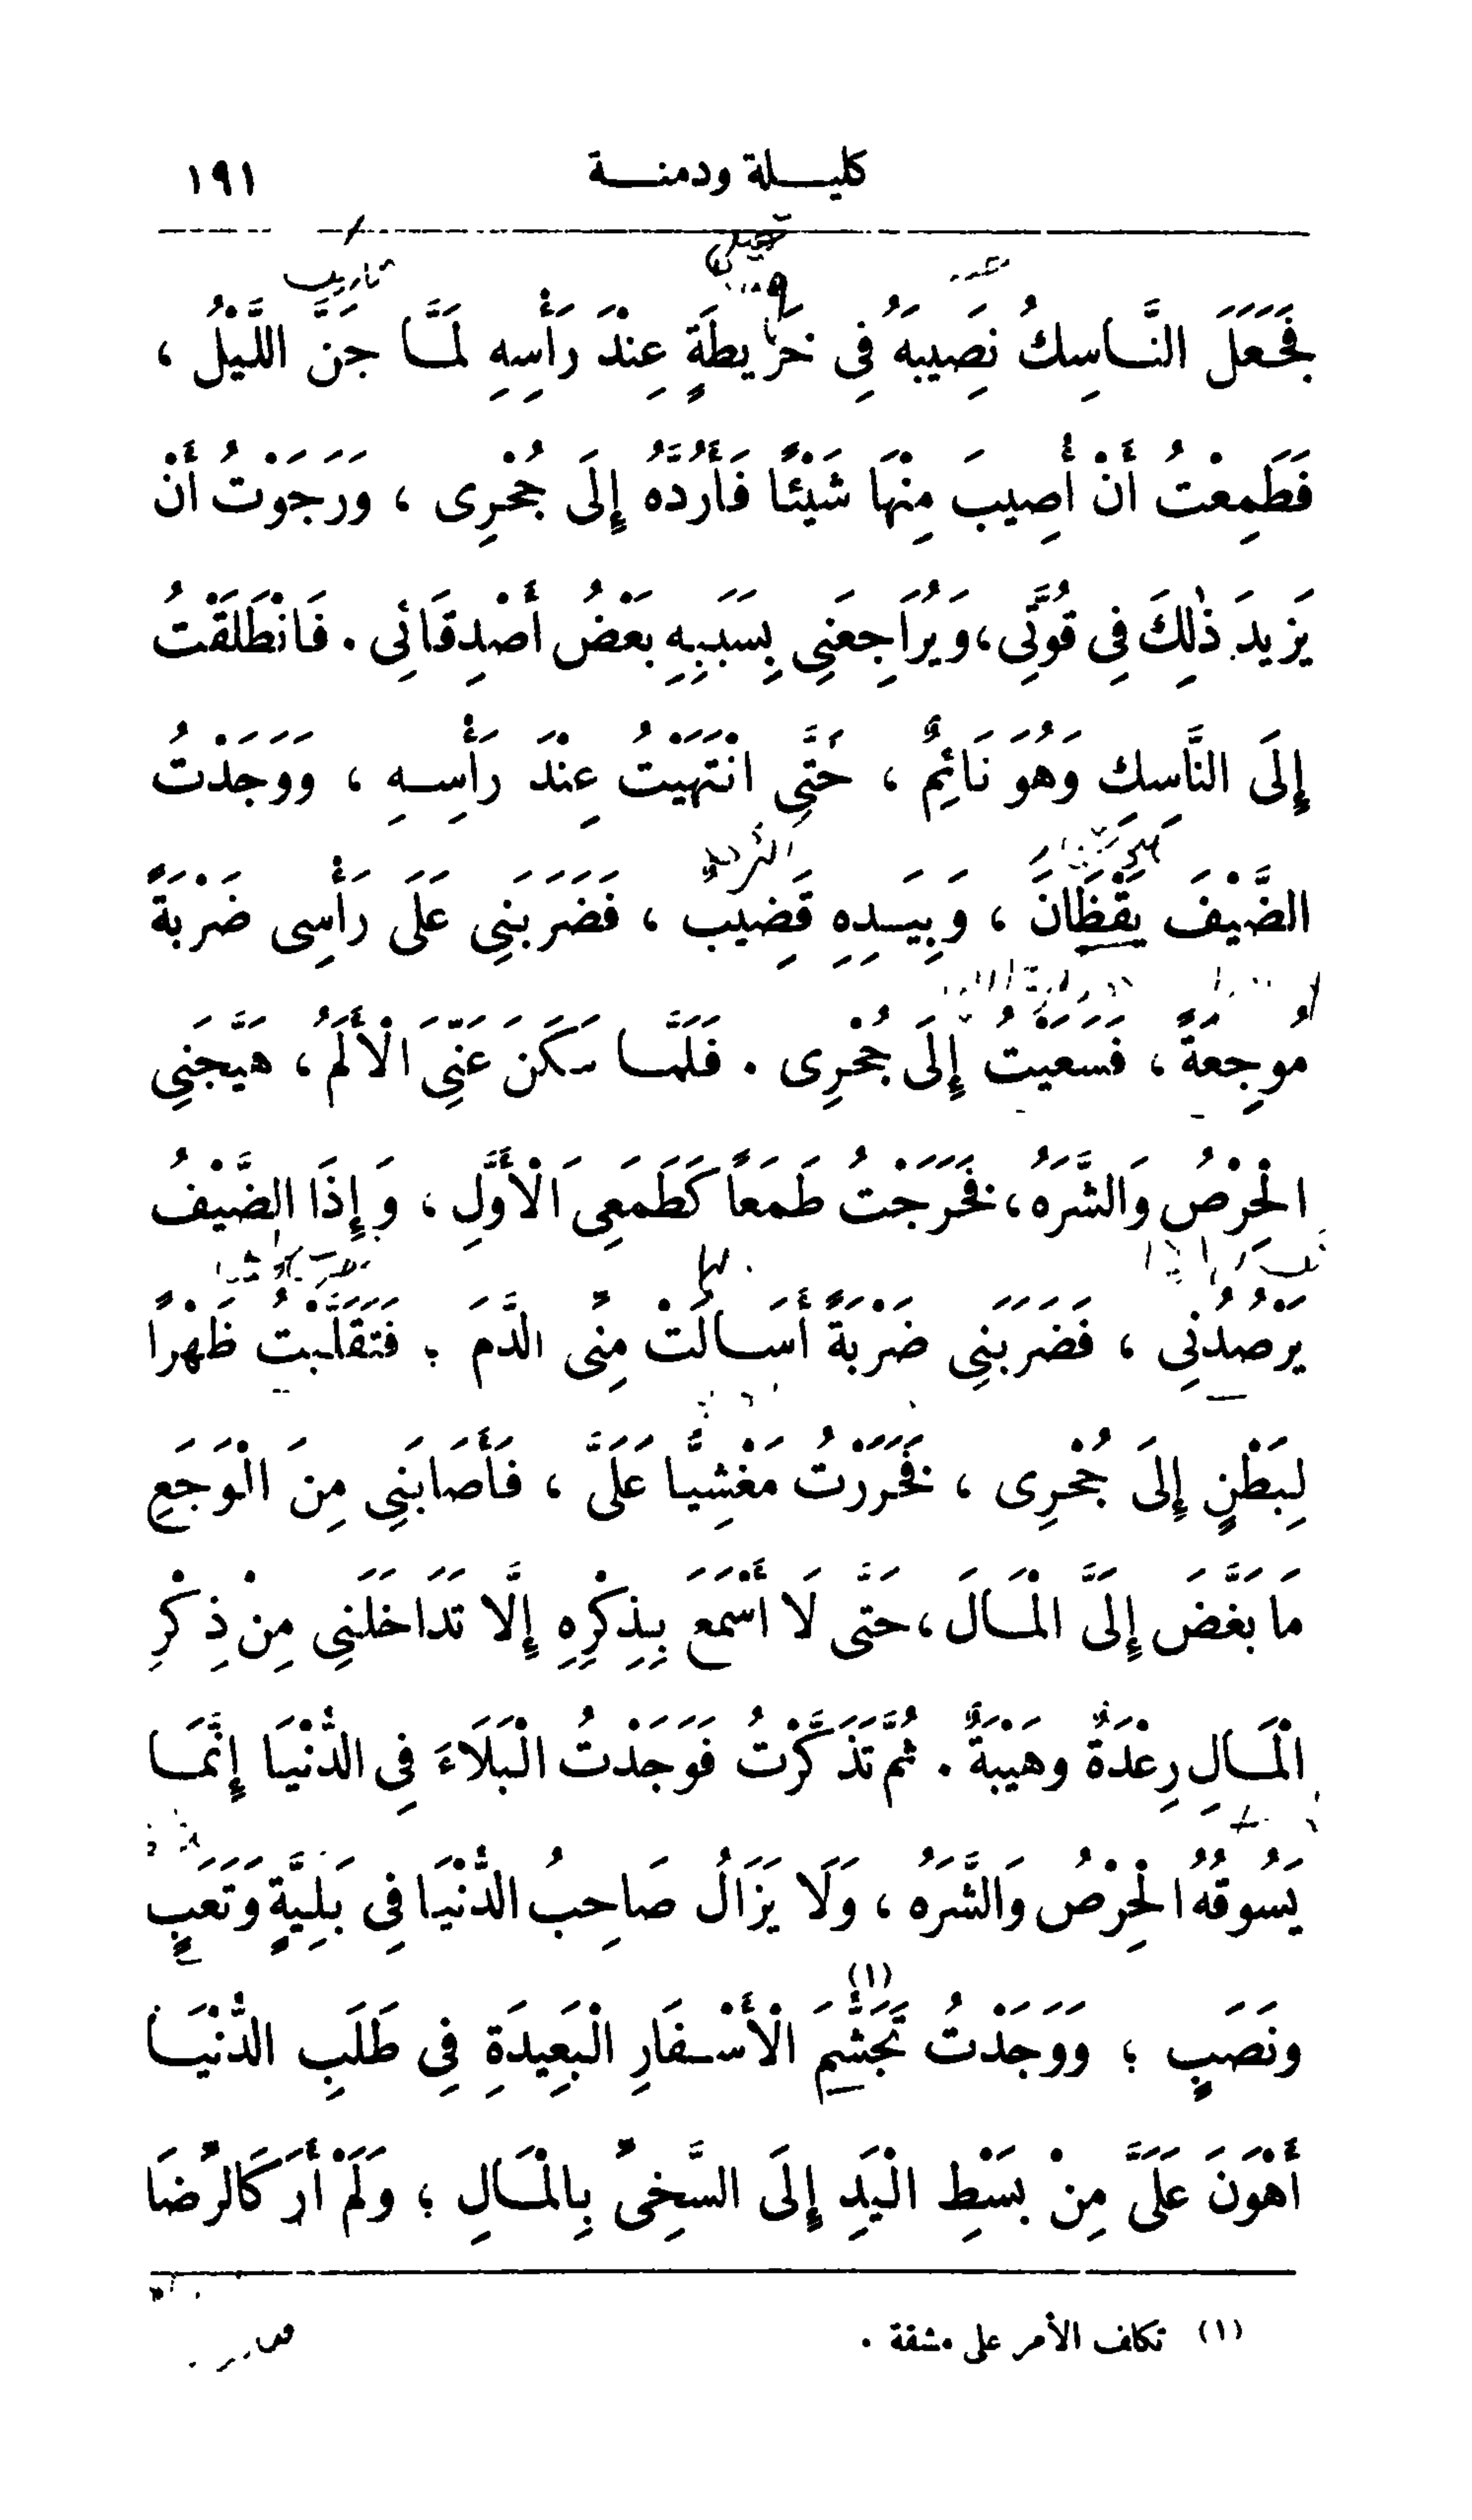 كليلة ودمنة ١٩١
فَجَعَلَ النَّاسِكُ نَصِيبَهُ فِى خَرِيطَةٍ عِنْدَ رَأْسِهِ لَمَّا جَنَّ اللَّيْلُ ،
فَطَمِعْتُ أَنْ أُصِيبَ مِنْهَا شَيْئًا فَأَرُدَّهُ إِلَى جُحْرِى ، وَرَجَوْتُ أَنْ
يَزِيدَ ذٰلِكَ فِى قُوَّتِى ، وَيُرَاجِعَنِى بِسَبَبِهِ بَعْضُ أَصْدِقَائِى . فَانْطَلَقْتُ
إِلَى النَّاسِكِ وَهُوَ نَائِمٌ ، حَتَّى انْتَهَيْتُ عِنْدَ رَأْسِهِ ، وَوَجَدْتُ
الضَّيْفَ يَقْظَانَ ، وَبِيَدِهِ قَضِيبٌ ، فَضَرَبَنِى عَلَى رَأْسِى ضَرْبَةً
مُوجِعَةً ، فَسَعَيْتُ إِلَى جُحْرِى . فَلَمَّا سَكَنَ عَنِّىَ الْأَلَمُ ، هَيَّجَنِى
الْحِرْصُ وَالشَّرَهُ ، فَخَرَجْتُ طَمَعاً كَطَمَعِىَ الْأَوَّلِ ، وَإِذَا الضَّيْفُ
يَرْصُدُنِى ، فَضَرَبَنِى ضَرْبَةً أَسَالَتْ مِنِّى الدَّمَ ؛ فَتَقَلَّبْتُ ظَهْرًا
لِبَطْنٍ إِلَى جُحْرِى ، فَخَرَرْتُ مَغْشِيًّا عَلَىَّ ، فَأَصَابَنِى مِنَ الْوَجَعِ
مَا بَغَّضَ إِلَىَّ الْمَالَ ، حَتَّى لَا أَسْمَعَ بِذِكْرِهِ إِلَّا تَدَاخَلَنِى مِنْ ذِكْرِ
الْمَالِ رِعْدَةٌ وهَيْبَةٌ . ثُمَّ تَذَكَّرْتُ فَوَجَدْتُ الْبَلَاءَ فِى الدُّنْيَا إِنَّمَا
يَسُوقُهُ الْحِرْصُ وَالشَّرَهُ ، وَلَا يَزَالُ صَاحِبُ الدُّنْيَا فِى بَلِيَّةٍ وَتَعَبٍ
ونَصَبٍ ؛ وَوَجَدْتُ تَجَشُّمَ (١) الْأَسْفَارِ الْبَعِيدَةِ فِى طَلَبِ الدُّنْيَا
أَهْوَنَ عَلَىَّ مِنْ بَسْطِ الْيَدِ إِلَى السَّخِىِّ بِالْمَالِ ؛ وَلَمْ أَرَ كَالرِّضَا
(١) تكلف الأمر على مشقة .